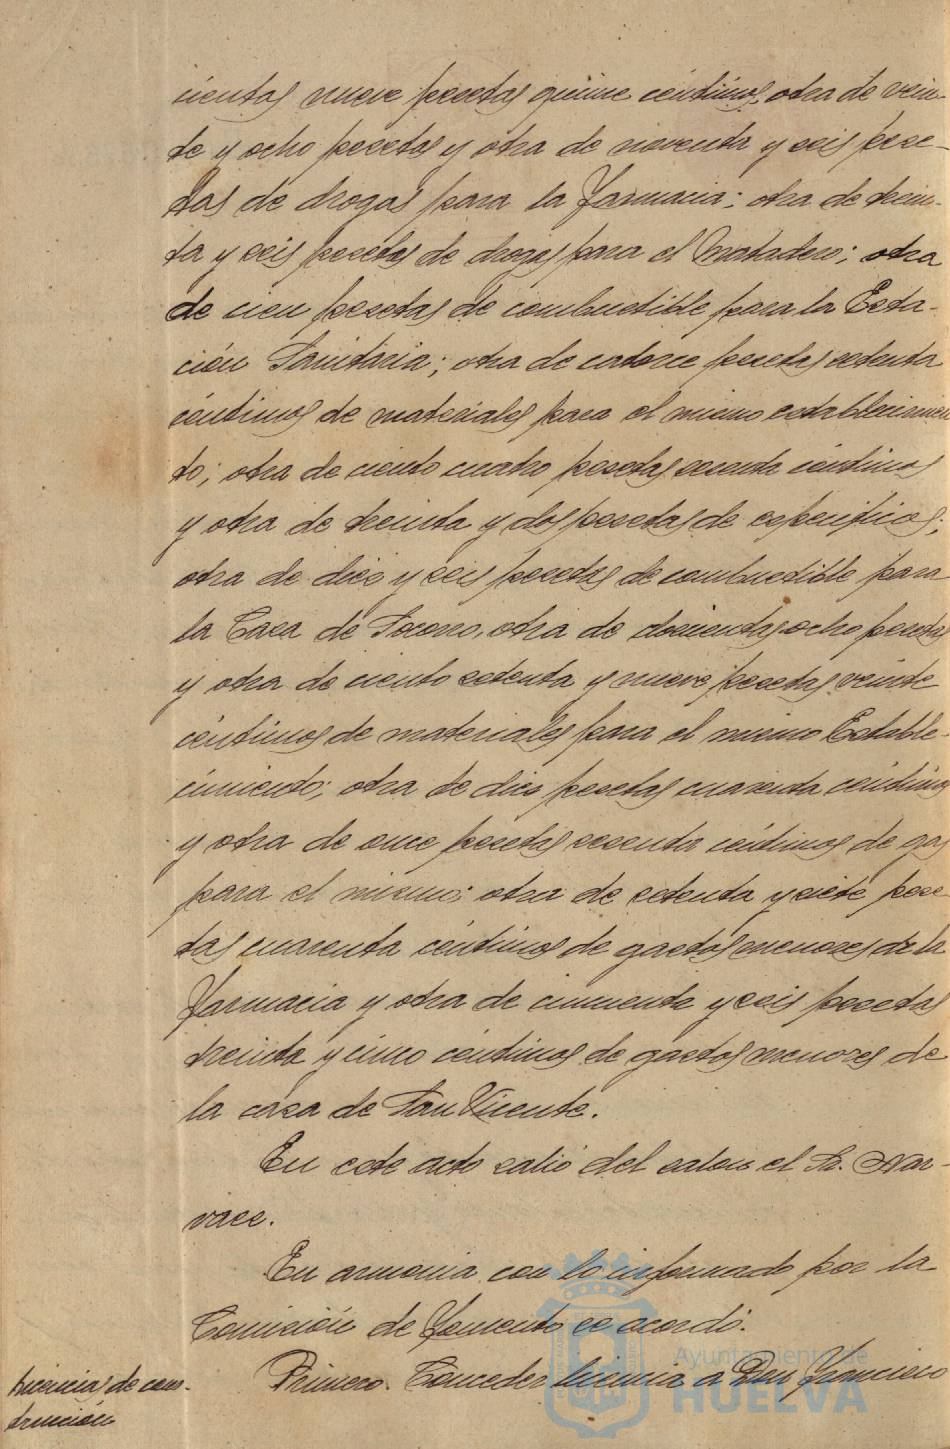 cientas nueve pesetas quince céntimos, otra de vein-
te y ocho pesetas y otra de noventa y seis pese-
tas de drogas para la Farmacia; otra de trein-
ta y seis pesetas de drogas para el Matadero; otra
de cien pesetas de combustible para la Esta-
ción Sanitaria; otra de catorce pesetas setenta
céntimos de materiales para el mismo establecimien
to; otra de ciento cuatro pesetas sesenta céntimos
y otra de treinta y dos pesetas de específicos;
otra de diez y seis pesetas de combustible para
la Casa de Socorro, otra de doscientas ocho pesetas
y otra de ciento setenta y nueve pesetas veinte
céntimos de materiales para el mismo Estable-
cimiento; otra de diez pesetas cuarenta céntimos
y otra de once pesetas sesenta céntimos de gas
para el mismo; otra de setenta y siete pese
tas cuarenta céntimos de gastos menores de la
Farmacia y otra de cincuenta y seis pesetas
treinta y cinco céntimos de gastos menores de
la casa de San Vicente.
En este acto salió del salon el Sr. Nar-
vaez.
En armonia con lo informado por la
Comisión de Fomento se acordó.
Licencias de cons-
trucción
Primero. Conceder licencia a Don Francisco
Ayuntamiento de
HUELVA